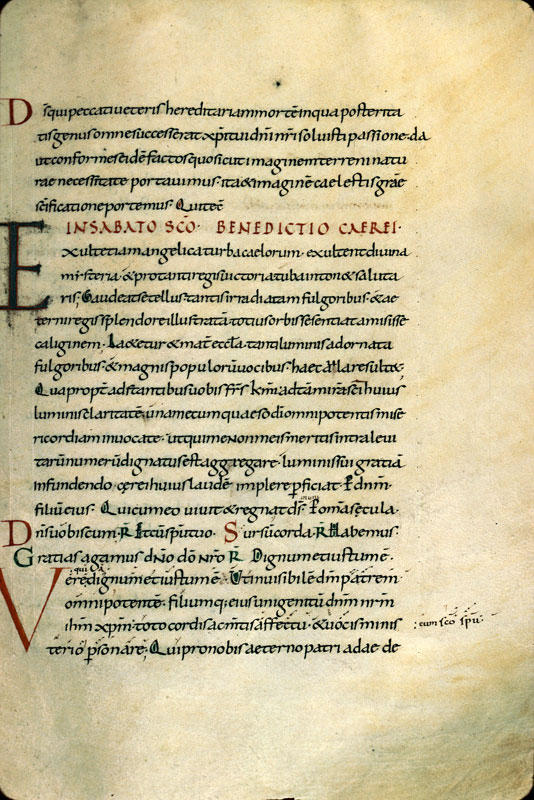 Ds qui peccati veteris hereditariam mortē in qua posterita
tis genus omne successerat xp̄i tui dn̄i nr̄i solvisti passione · da
ut conformes eidē factos quos sicut imaginem terreni natu
rae necessitate portavimus · ita & imaginē caelestis grāe
sc̄ificatione portemus · Qui tecū
IN SABATO SC̄O · BENEDICTIO CAEREI ·
Exultet iam angelica turba caelorum · exultent divina
mysteria · & pro tanti regis victoria tuba inton& saluta
ris ; Gaudeat se tellus tantis irradiatam fulgoribus · & ae
terni regis splendore illustrata totius orbis se sentiat amisisse
caliginem · Laetetur & mat̄ eccl̄a · tanti luminis adornata
fulgoribus · & magnis populorū vocibus haec aula result& ·
Quapropt̄ adstantibus vobis fr̄s km̄i ad tā mirā sc̄i huius
luminis claritatē · una mecum quaeso dī omnipotentis mise
ricordiam invocate · ut qui me non meis meritis intra levi
tarū numerū dignatus est aggregare · luminis sui gratiā
infundendo cerei huius laudē implere perficiat · P dn̄m
filiū eius · Qui cum eo vivit & regnat ds̄ · P omā secula ·
Dn̄s vobiscum · R Et cū spū tuo · Sursū corda · R Habemus ·
Gratias agamus dn̄o dō nr̄o R Dignum et iustum ē ·
qui
Vere dignum et iustum ē · Ut invisibilē dm̄ patrem
omnipotentē · filiumq; eius unigenitū dn̄m nr̄m
ihm̄ xp̄m · toto cordis ac mtis affectu · & vocis minis
: cum sc̄o spū ·
terio personare · Qui pro nobis aeterno patri adae de